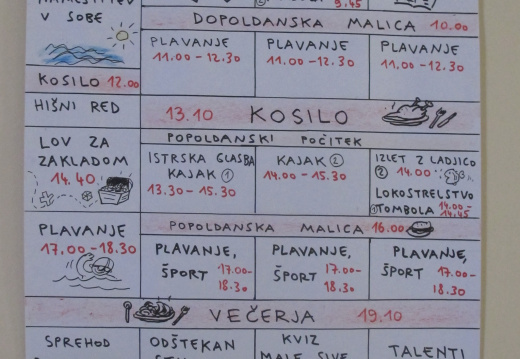 V SOBE
DOPOLDANSKA MALICA 10.00
PLAVANJE PLAVANJE PLAVANJE
11.00-12.30 11.00-12.30 11.00-12.30
KOSILO 12.00
HIŠNI RED
13.10 KOSILO
POPOLDANSKI POČITEK
LOV ZA
ZAKLADOM
14.40
ISTRSKA GLASBA
KAJAK ①
13.30-15.30
KAJAK ②
14.00-15.30
IZLET Z LADJICO
② 14.00
LOKOSTRELSTVO
① TOMBOLA 14.00-14.45
POPOLDANSKA MALICA 16.00
PLAVANJE
17.00-18.30
PLAVANJE,
ŠPORT 17.00-
18.30
PLAVANJE,
ŠPORT 17.00-
18.30
PLAVANJE,
ŠPORT 17.00-
18.30
VEČERJA 19.10
SPREHOD
ODŠTEKAN
KVIZ
MALE SIVE
TALENTI